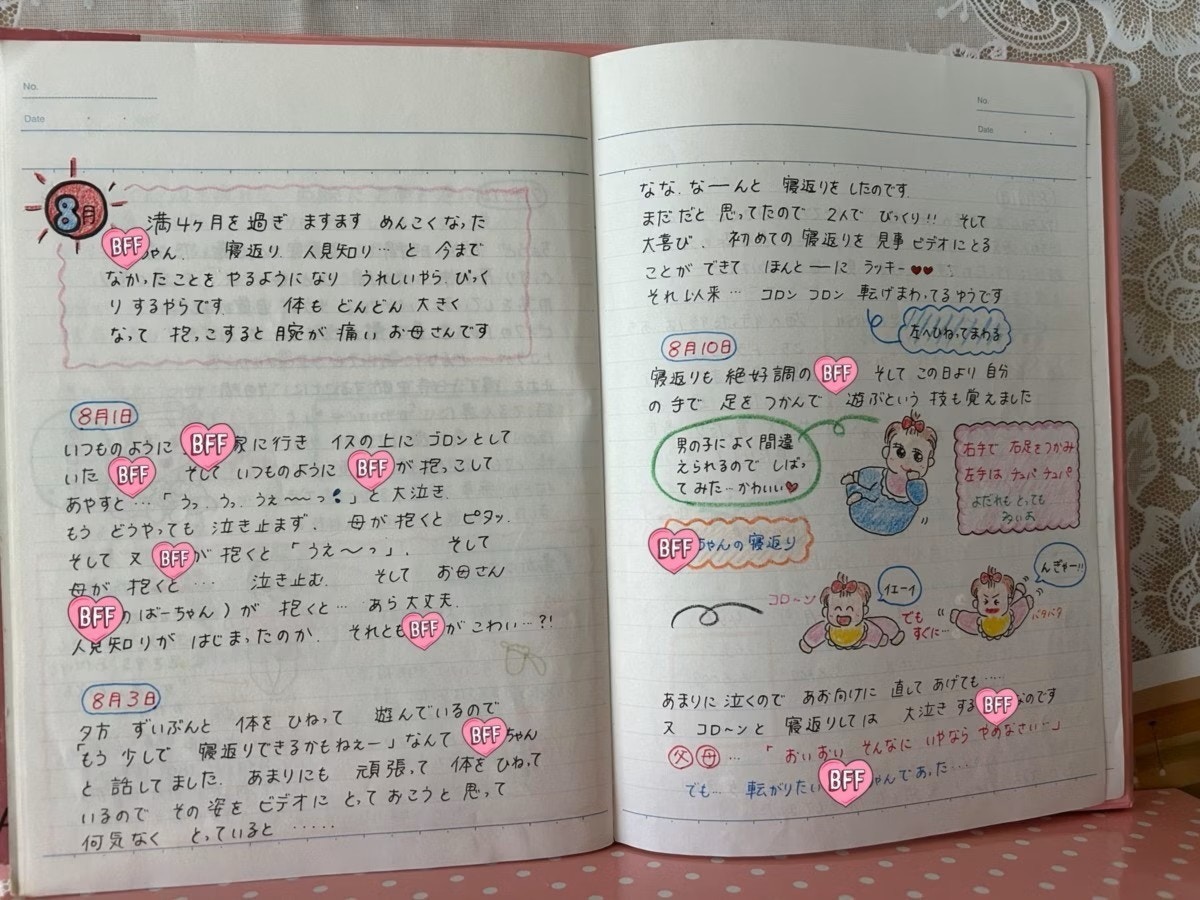 No.
Date
8月
満4ヶ月を過ぎ ますます めんこくなった
BFFちゃん. 寝返り 人見知り… と 今まで
なかったことを やるようになり うれしいやら びっく
り するやらです. 体も どんどん 大きく
なって 抱っこすると 腕が 痛い お母さんです
8月1日
いつものように BFF家に行き イスの上に ゴロンとして
いた BFF そして いつものように BFFが 抱っこして
あやすと…「うっ. うっ. うぇ〜〜っ」と 大泣き.
もう どうやっても 泣き止まず. 母が 抱くと ピタッ.
そして 又 BFFが 抱くと「うえ〜っ」. そして
母が 抱くと… 泣き止む. そして お母さん
BFFのばーちゃん)が 抱くと… あら大丈夫.
人見知りが はじまったのか. それともBFFがこわい…?!
8月3日
夕方 ずいぶんと 体を ひねって 遊んでいるので
「もう 少しで 寝返りできるかもねぇー」なんて BFFちゃん
と 話してました. あまりにも 頑張って 体を ひねって
いるので その姿を ビデオに とっておこうと 思って
何気なく とっていると ‥‥‥
No.
Date
なな. なーんと 寝返りを したのです.
まだだと 思ってたので 2人で びっくり!! そして
大喜び. 初めての 寝返りを 見事 ビデオにとる
ことが できて ほんとーに ラッキー♥♥
それ以来… コロン コロン 転げまわってる ゆうです
左へひねってまわる
8月10日
寝返りも 絶好調の BFF そして この日より 自分
の 手で 足を つかんで 遊ぶという 技も 覚えました
男の子に よく 間違
えられるので しばっ
てみた…かわいい♥
右手で 右足をつかみ
左手は チュパ チュパ
よだれも とっても
BFFちゃんの 寝返り
コロ〜ン
イエーイ
でも
すぐに…
んぎゃー!!
バタバタ
あまりに 泣くので あお向けに 直して あげても‥‥
又 コロ〜ンと 寝返りしては 大泣き する BFFなのです
父 母 …「おいおい そんなに いやなら やめなさい…」
でも… 転がりたい BFFちゃんであった…